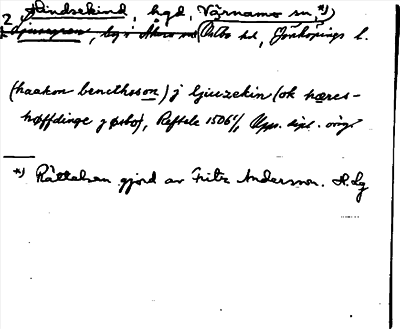 2 Flindsekind, bgd, Värnamo sn, *)
Ljusegren, by i (Östbo hd, Jönköpings l.
(haakon benethsson) j ljuzekin (ok hæres-
høffdinge j øsbo), Reftele 1506 1/1, Upps. dipl. orig.
*) Rättelsen gjord av Fritz Andersson. H. Lg